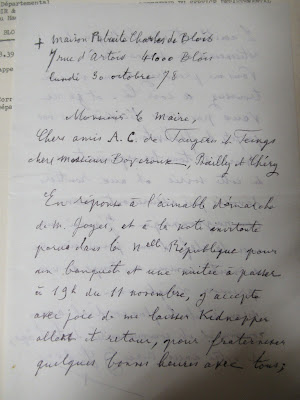 Départemental
+ Maison Retraite Charles de Blois
7 rue d'Artois 41000 Blois
lundi 30 octobre 78
Monsieur le Maire,
Chers amis A.C. de Fougères et Feings
chers Messieurs Boyeroux, Bailly et Théry
En réponse à l'aimable démarche
de M. Joyes, et à la note invitante
parue dans la Nelle République pour
un banquet et une nuitée à passer
à 19h du 11 novembre, j'accepte
avec joie de me laisser Kidnapper
allant et retour, pour fraterniser
quelques bonnes heures avec tous;